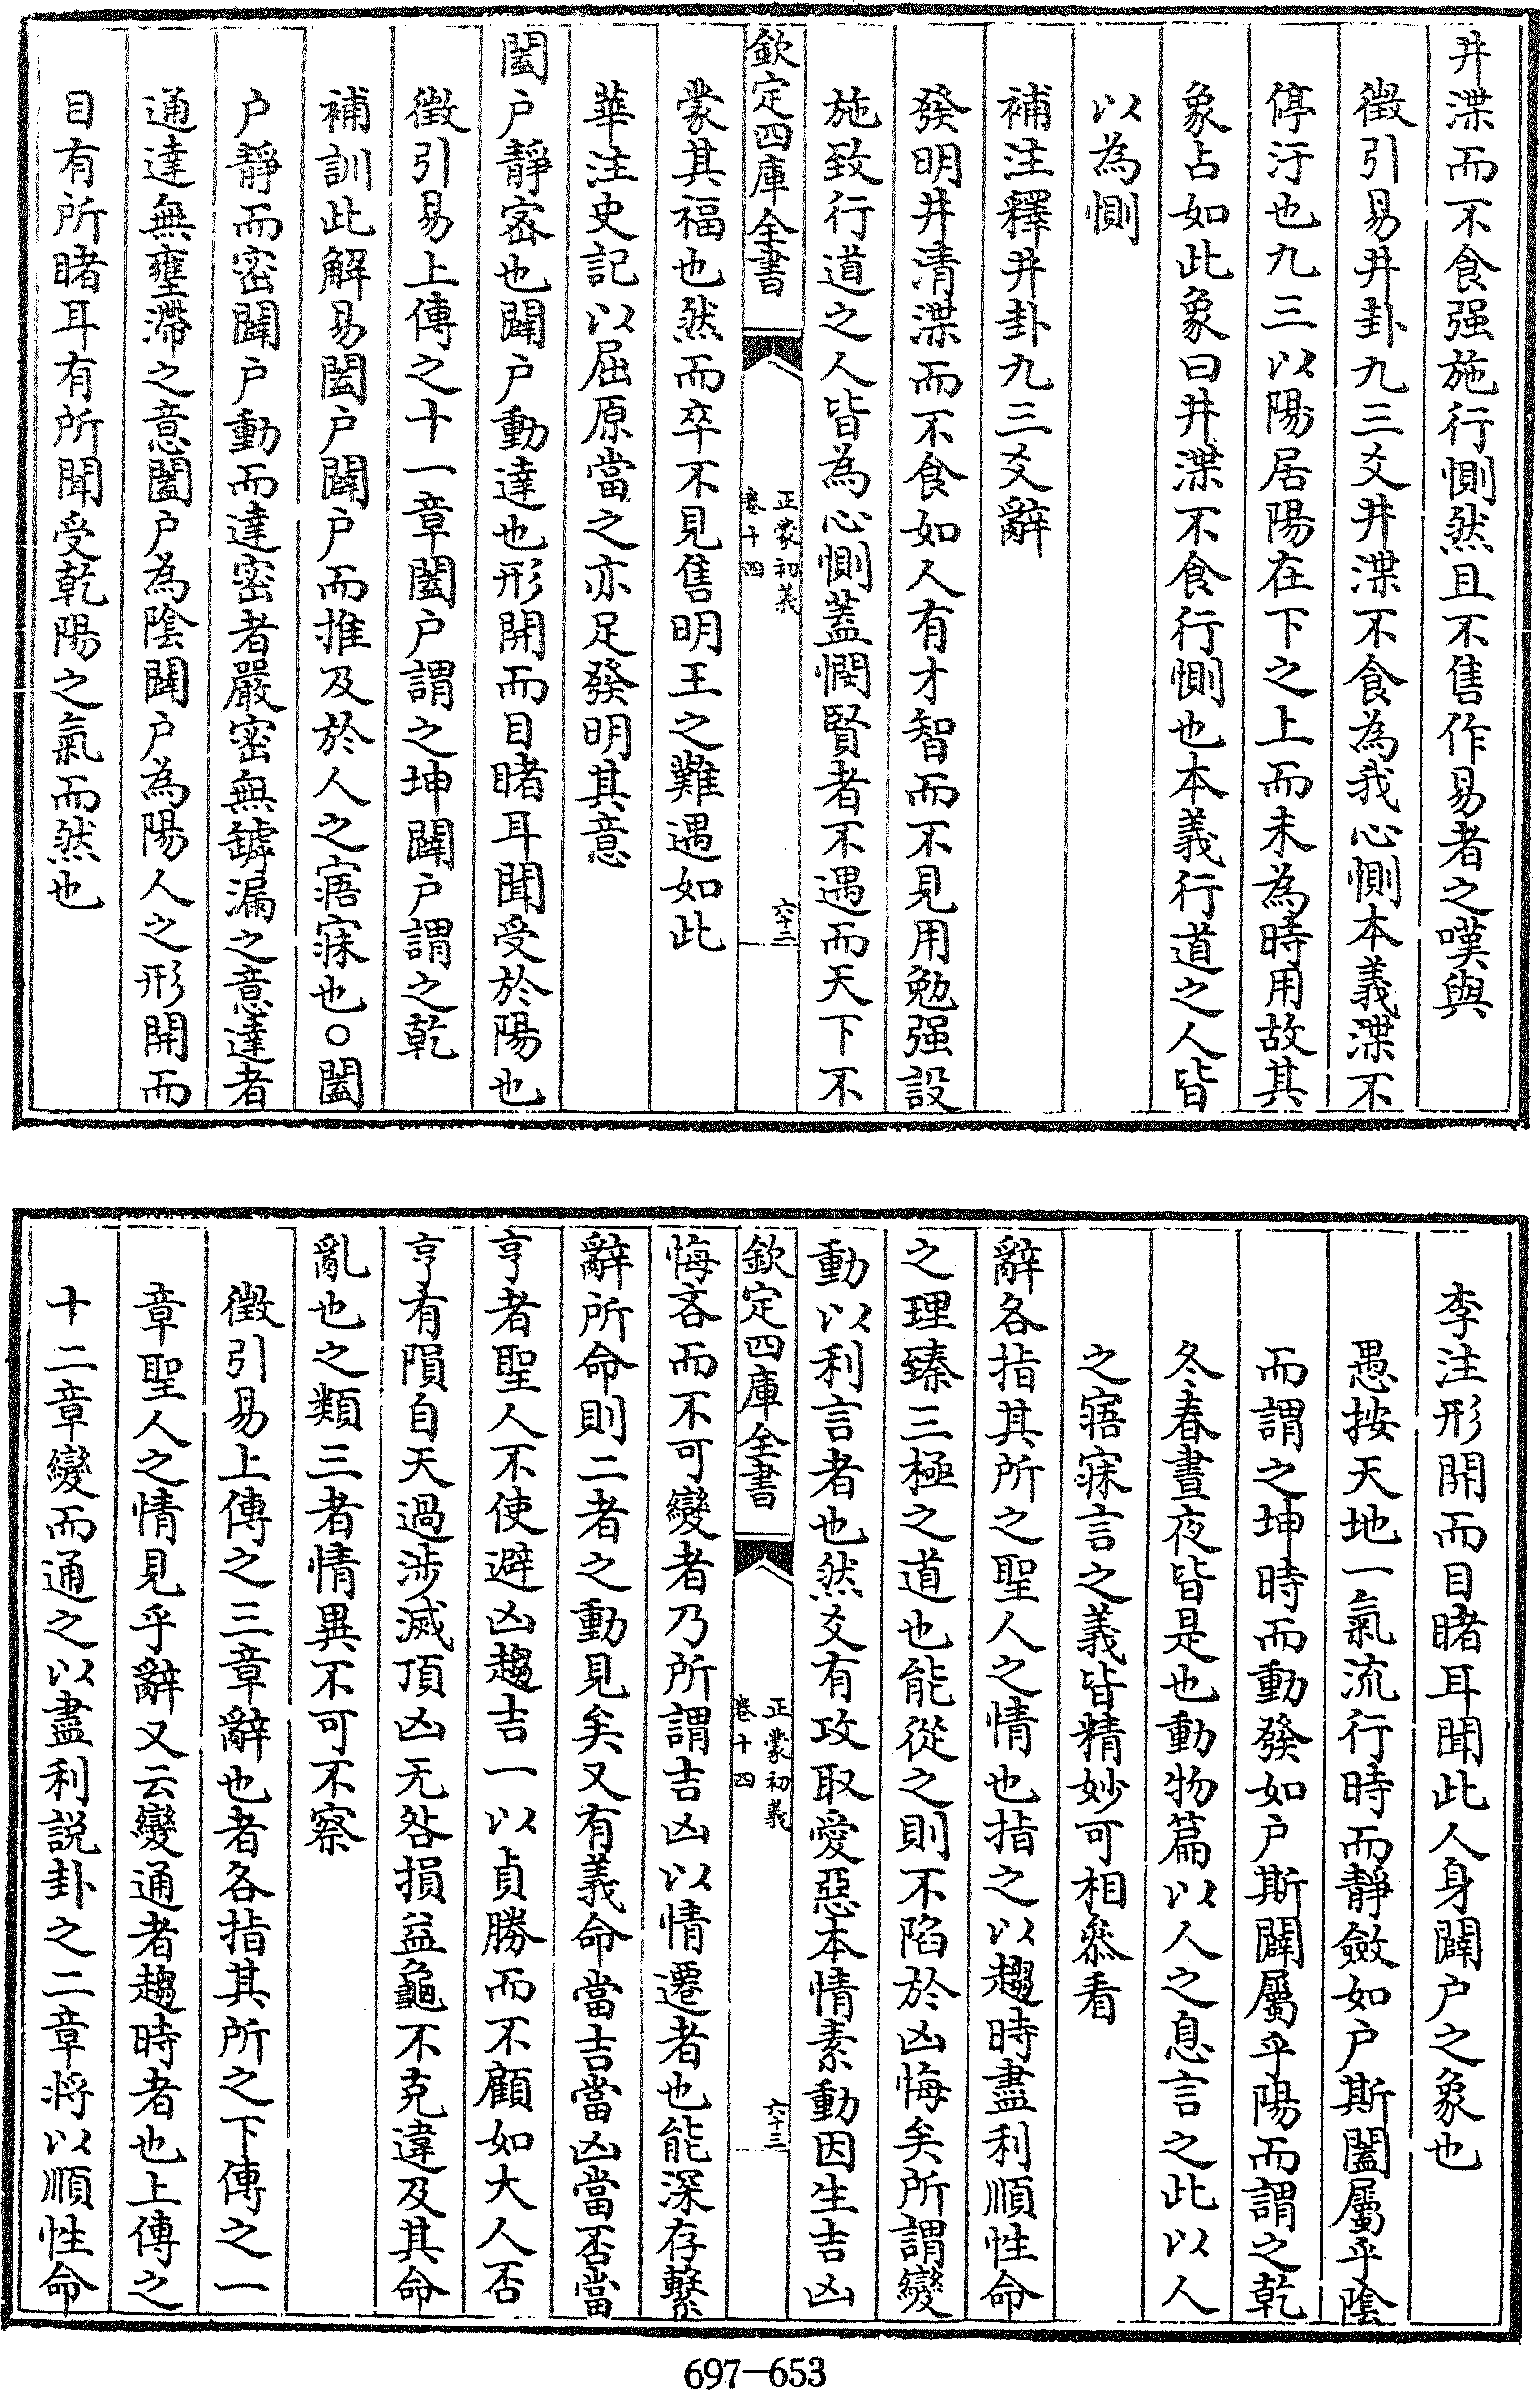 井渫而不食强施行惻然且不售作易者之嘆與
徵引易井卦九三爻井渫不食為我心惻本義渫不
停汙也九三以陽居陽在下之上而未為時用故其
象占如此象曰井渫不食行惻也本義行道之人皆
以為惻
補注釋井卦九三爻辭
發明井清渫而不食如人有才智而不見用勉强設
施致行道之人皆為心惻蓋憫賢者不遇而天下不
欽定四庫全書
正蒙初義
卷十四
六十三
蒙其福也然而卒不見售明王之難遇如此
華注史記以屈原當之亦足發明其意
闔户靜密也闢户動達也形開而目睹耳聞受於陽也
徵引易上傳之十一章闔户謂之坤闢户謂之乾
補訓此解易闔户闢户而推及於人之寤寐也○闔
户靜而密闢户動而達密者嚴密無罅漏之意達者
通達無壅滯之意闔户為陰闢户為陽人之形開而
目有所睹耳有所聞受乾陽之氣而然也
李注形開而目睹耳聞此人身闢户之象也
愚按天地一氣流行時而靜斂如户斯闔屬乎陰
而謂之坤時而動發如户斯闢屬乎陽而謂之乾
冬春晝夜皆是也動物篇以人之息言之此以人
之寤寐言之義皆精妙可相叅看
辭各指其所之聖人之情也指之以趨時盡利順性命
之理臻三極之道也能從之則不陷於凶悔矣所謂變
動以利言者也然爻有攻取愛惡本情素動因生吉凶
欽定四庫全書
正蒙初義
卷十四
六十三
悔吝而不可變者乃所謂吉凶以情遷者也能深存繫
辭所命則二者之動見矣又有義命當吉當凶當否當
亨者聖人不使避凶趨吉一以貞勝而不顧如大人否
亨有隕自天過涉滅頂凶无咎損益龜不克違及其命
亂也之類三者情異不可不察
徵引易上傳之三章辭也者各指其所之下傳之一
章聖人之情見乎辭又云變通者趨時者也上傳之
十二章變而通之以盡利説卦之二章將以順性命
697-653